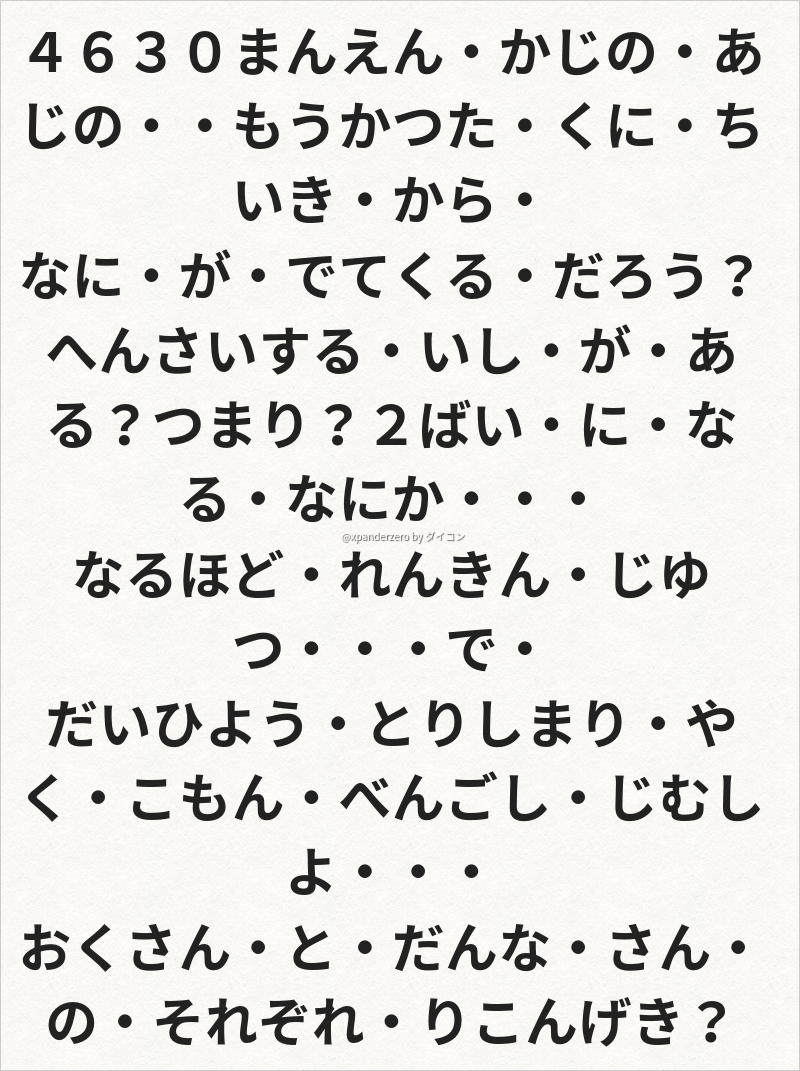 ４６３０まんえん・かじの・あ
じの・・もうかつた・くに・ち
いき・から・
なに・が・でてくる・だろう？
へんさいする・いし・が・あ
る？つまり？２ばい・に・な
る・なにか・・・
@xpanderzero by ダイコン
なるほど・れんきん・じゆ
つ・・・で・
だいひよう・とりしまり・や
く・こもん・べんごし・じむし
よ・・・
おくさん・と・だんな・さん・
の・それぞれ・りこんげき？